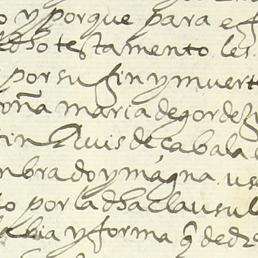 o y porque para e
dho testamento les
por su fin y muert
oña maria de gordez
tin Luis de cabala
nbrado y magna us
o por la dha clausul
labia y forma q de dre